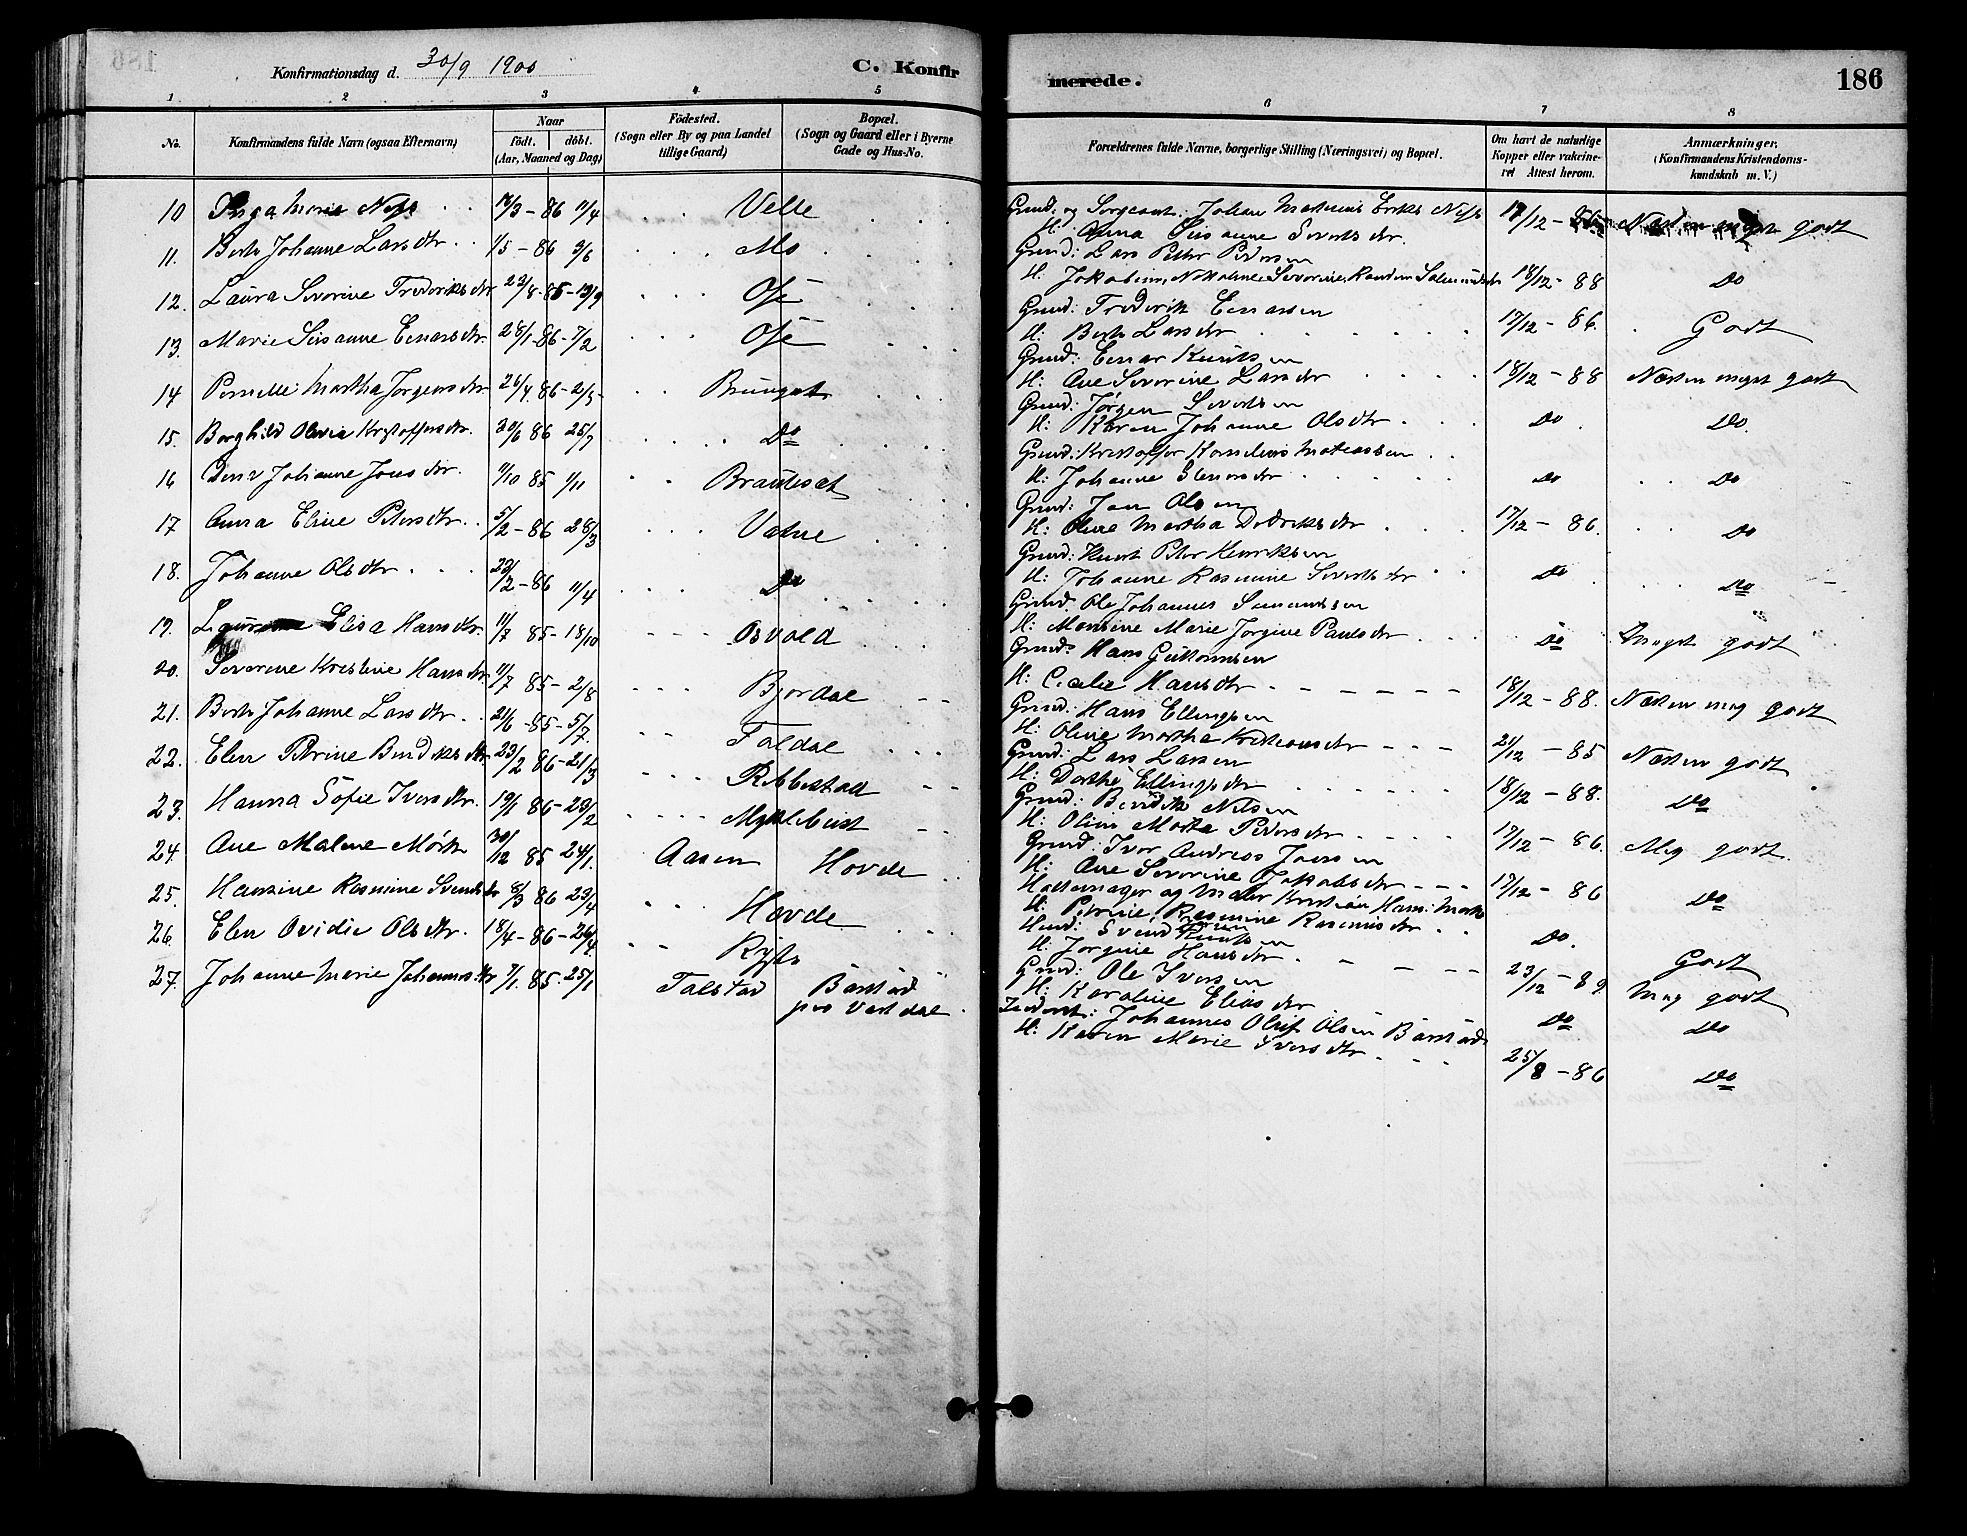 Konfirmationsdag d. 30/9 1900
C. Konfir
merede.
186
1 2 3 4 5 6 7 8
No.
Konfirmandens fulde Navn (ogsaa Efternavn)
Naar
födt. döbt.
(Aar, Maaned og Dag)
Födested.
(Sogn eller By og paa Landet
tillige Gaard)
Bopæl.
(Sogn og Gaard eller i Byerne
Gade og Hus-No.
Forældrenes fulde Navne, borgerlige Stilling (Næringsvei) og Bopæl.
Om havt de naturlige
Kopper eller vakcine-
ret Attest herom.
Anmærkninger.
(Konfirmandens Kristendoms-
kundskab m. V.)
10 Inga Marie Ness 16/3 - 86 11/4 Velle
Gmd: og Sergeant: Johan Martinus Eriks Ness
H: Anna Susanne Sivertsdtr. 17/12 - 86 Næsten meget godt
11. Berte Johanne Larsdtr. 1/5 - 86 9/6 Mo
Gmd: Lars Petter Pedersen
H: Jakobine Nikoline Severine Salmundsdtr 18/12 - 88 Do
12. Laura Severine Frederiksdtr 22/8 - 85 - 13/9 Ose
Gmd: Frederik Einarsen
H: Berte Larsdtr 17/12 - 86. Godt
13. Marie Susanne Einarsdtr. 28/1 - 86 - 7/2 Ose
Gmd: Einar Knutsen
H: Ane Severine Larsdtr 18/12 - 88 Næsten meget godt
14 Pernille Martha Jørgensdtr 26/4. 86 - 2/5 -
Gmd: Jørgen Sivertsen
H: Karen Johanne Olsdtr Do Do
15. Borghild Olivia Kristoffersdtr. 30/6 86 25/7 Do
Gmd: Kristoffer Kornelius Mateassen
H: Johanne Do Do
16 Johanne Jonsdtr. 11/10 85 1/11
Gmd: Jon Olsen
H: Oline Martha Didriksdtr 17/12 - 86. Do
17 Anna Eline Petersdtr. 5/2 - 86 28/3 Vatne
Gmd: Knut Peter Henriksen
H: Johanne Rasmine Sivertsdtr Do Do
18. Johanne Olsdtr. 22/2 - 86 11/4 Do
Gmd. Ole Johannes
H: Monsine Marie Jørgine Paulsdtr Do Meget godt
19. Elisa Hansdtr. 11/7 85 - 18/10 Osvold
Gmd: Hans Guttormsen
H: Cicilie Hansdtr 18/12 - 88. Næsten meg godt
20. Severine Kristine Hansdtr. 11/7 85 - 2/8 Bjørdal
Gmd: Hans Ellingsen
H: Oline Martha Kristiansdtr 21/12 - 85 Næsten godt
21. Berte Johanne Larsdtr. 21/6 - 85 - 5/7 Foldal
Gmd: Lars Larsen
H: Dorthe Ellingsdtr 18/12 - 88. Do
22. Elen Petrine Bendiksdtr 23/2 86 - 21/3 Ribbestad
Gmd: Bendik Nilsen
H: Oline Marta Pedersdtr 17/12 - 86. Meg godt.
23. Hanna Sofie Iversdtr. 19/1 86 - 29/2 Myklebust
Gmd: Iver Andreas Jonsen
H: Ane Severine Jakobsdtr 17/12 - 86 Do
24. Ane Malene Mørk 30/12 85 24/1. Aasen Hovde
og Maler Kristian Hans: Mørk
H: Petrine Rasmine Rasmusdtr Do. Godt
25. Hansine Rasmine Svendsdtr 8/3 86 23/4 Hovde
Svend Knutsen
H: Jørgine Hansdtr. 23/12 - 89. Meg godt
26. Elen Ovidie Olsdtr. 18/4 - 86 - 26/4
Gmd: Ole Iversen
H: Karoline Eliasdtr Do Do
27. Johanne Marie Johannesdtr 7/1. 85. 25/1 Folstad Barstad
paa Vartdal
Johannes Oluf Olsen Barstad
H: Karen Marie Iversdtr. 25/8 - 86 Do